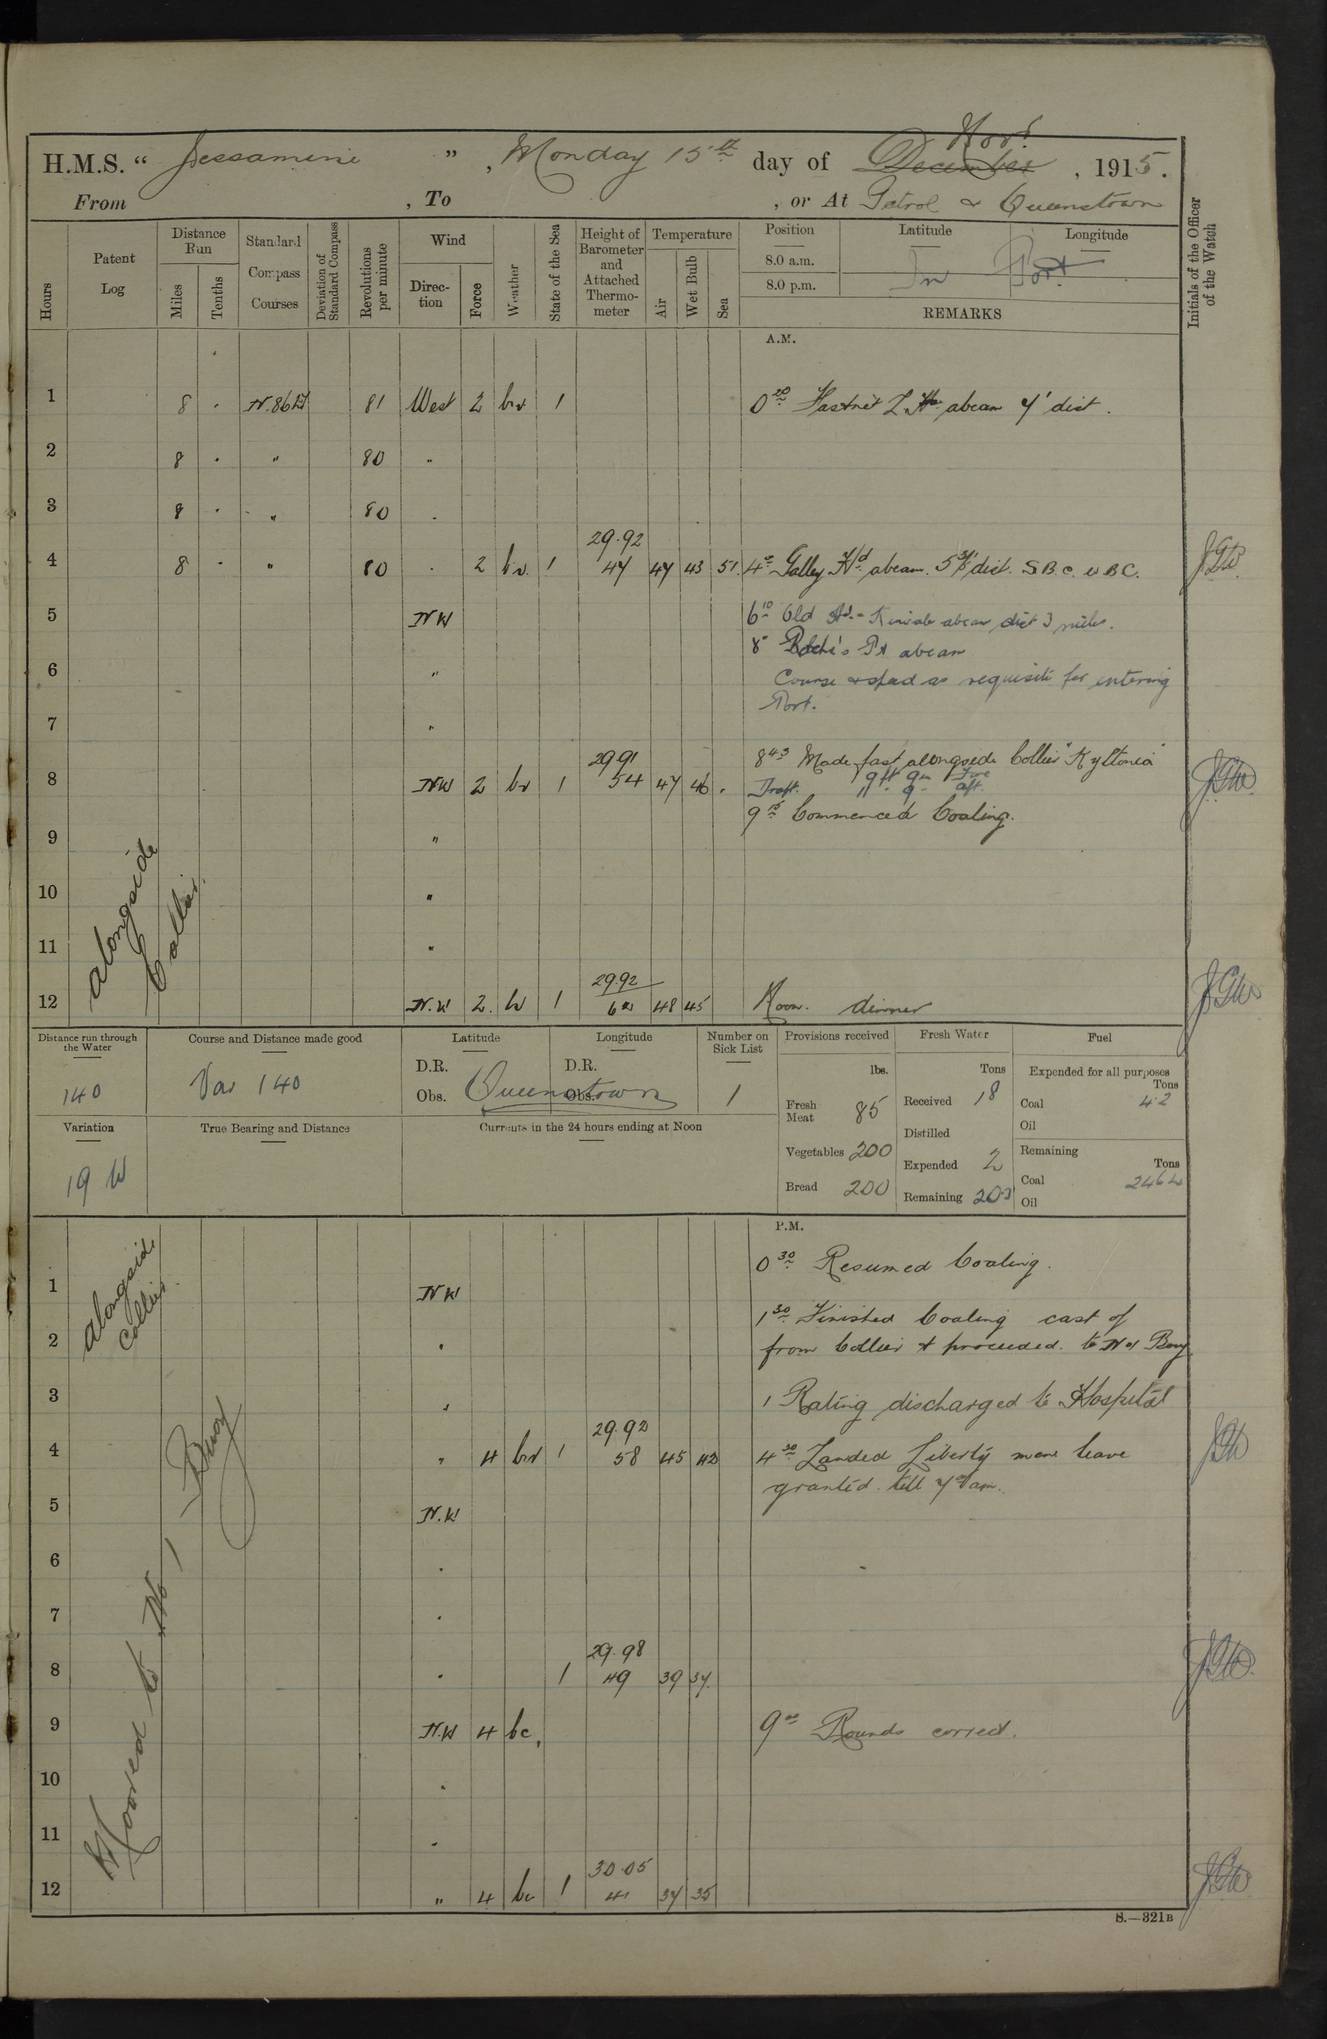 H.M.S. " Jessamine " , Monday 15th day of December Novr , 1915.
From , To , or At Patrol & Queenstown
Hours
Patent Log
Distance Run
Miles
Tenths
Standard Compass Courses
Deviation of Standard Compass
Revolutions per minute
Wind
Direction
Force
Weather
State of the Sea
Height of Barometer and Attached Thermometer
Temperature
Air
Wet Bulb
Sea
Position Latitude Longitude
8.0 a.m.
8.0 p.m. In Port
REMARKS
Initials of the Officer of the Watch
A.M.
1 8 . N.86 81 West 2 bv 1 0 20 Fastnet L Ho abeam 7' dist.
2 8 . " 80 "
3 8 . " 80 "
29.92
4 8 . " 80 . 2 bv. 1 47 47 43 51 4 0 Galley Hd abeam. dist. S.B.C. & B.C.
5 NW 6 10 Old Hd Kinsale abeam dist 3 miles.
8 Roche's Pt abeam
6 " Course & speed as requisite for entering
Port.
7 "
29.91 8 43 Made fast alongside Collier "Kyltonia"
8 NW 2 bv 1 54 47 46 . Draft. 9 ft 9 in Fore
11 - 9 - aft.
9 15 Commenced Coaling.
9 "
10 "
11 "
alongside Collier
29.92
12 N.W 2. 1 48 45 Noon. dinner
Distance run through the Water
140
Course and Distance made good
Var 140
Latitude
D.R.
Obs.
Longitude
D.R.
Obs.
Queenstown
Number on Sick List
1
Provisions received
lbs.
Fresh Meat 85
Vegetables 200
Bread 200
Fresh Water
Tons
Received 18
Distilled
Expended 2
Remaining
Fuel
Expended for all purposes
Tons
Coal 42
Oil
Remaining
Tons
Coal
Oil
Variation
19 W
True Bearing and Distance
Currents in the 24 hours ending at Noon
P.M.
0 30 Resumed Coaling.
1 NW
alongside Collier
1 30 Finished Coaling cast of
2 " from Collier & proceeded. to No 1 Buoy
3 " 1 Rating discharged to Hospital
29.92
4 " 4 bv 1 58 45 42 4 30 Landed Liberty men leave
granted till 7 am.
5 N.W
6 "
7 "
29.98
8 " 1 49 39 37
9 N.W 4 bc, 9 00 Rounds correct.
10 "
11 "
Moored to No 1 Buoy
30.05
12 " 4 bc 1 41 37 35
S.—321B